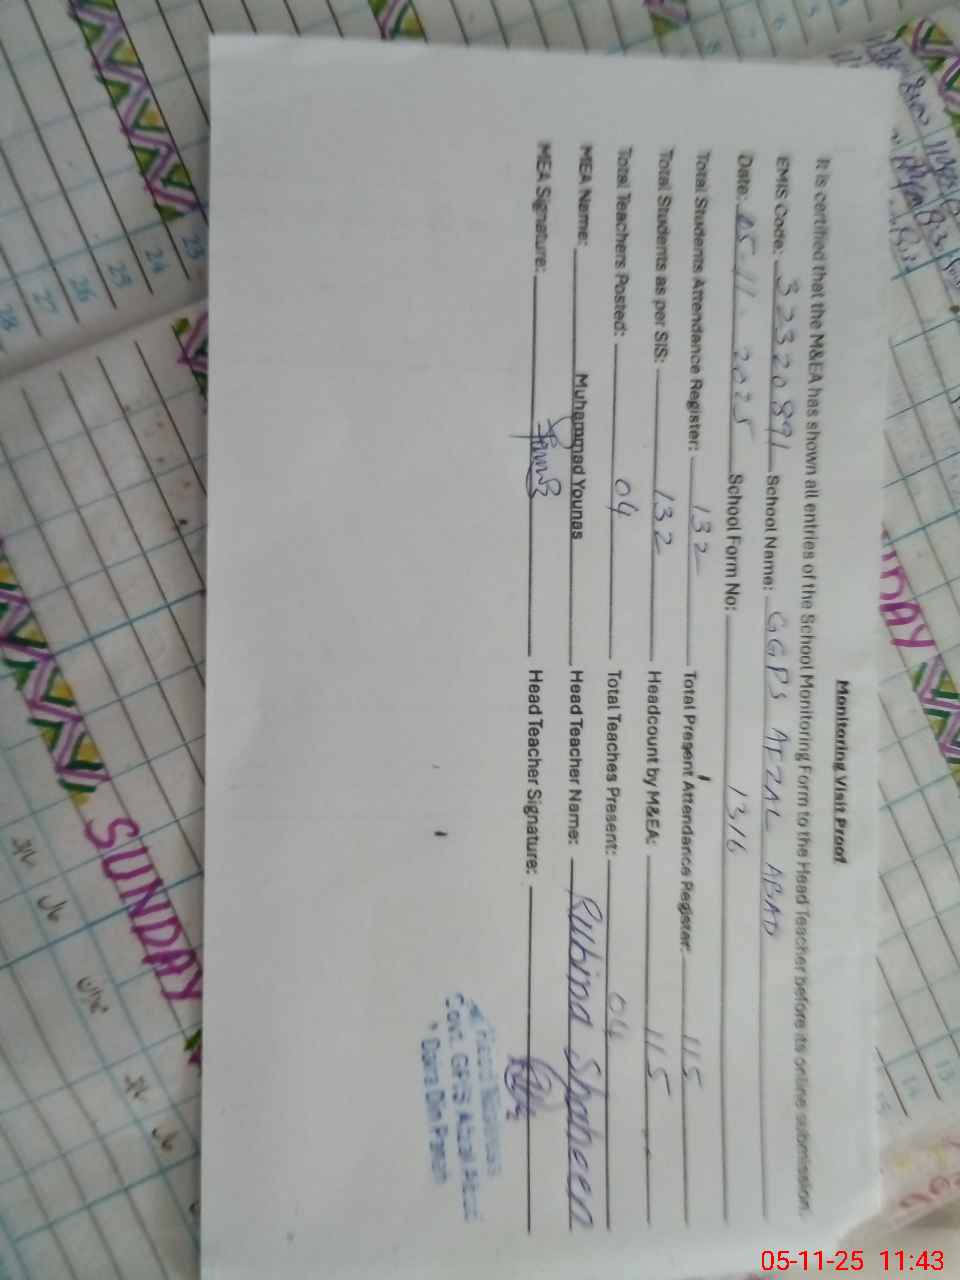 Monitoring Visit Proof
It is certified that the M&EA has shown all entries of the School Monitoring Form to the Head Teacher before its online submission.
EMIS Code: 32320891 School Name: GGPS AFZAL ABAD
Date: 05-11-2025 School Form No: 1316
Total Students Attendance Register: 132 Total Present Attendance Register: 115
Total Students as per SIS: 132 Headcount by M&EA: 115
Total Teachers Posted: 04 Total Teaches Present: 04
MEA Name: Muhammad Younas Head Teacher Name: Rubina Shaheen
MEA Signature: Head Teacher Signature:
Govt. Afzal Abad
Daira Din Panah
SUNDAY
SUNDAY
23
24
25
26
27
28
05-11-25 11:43